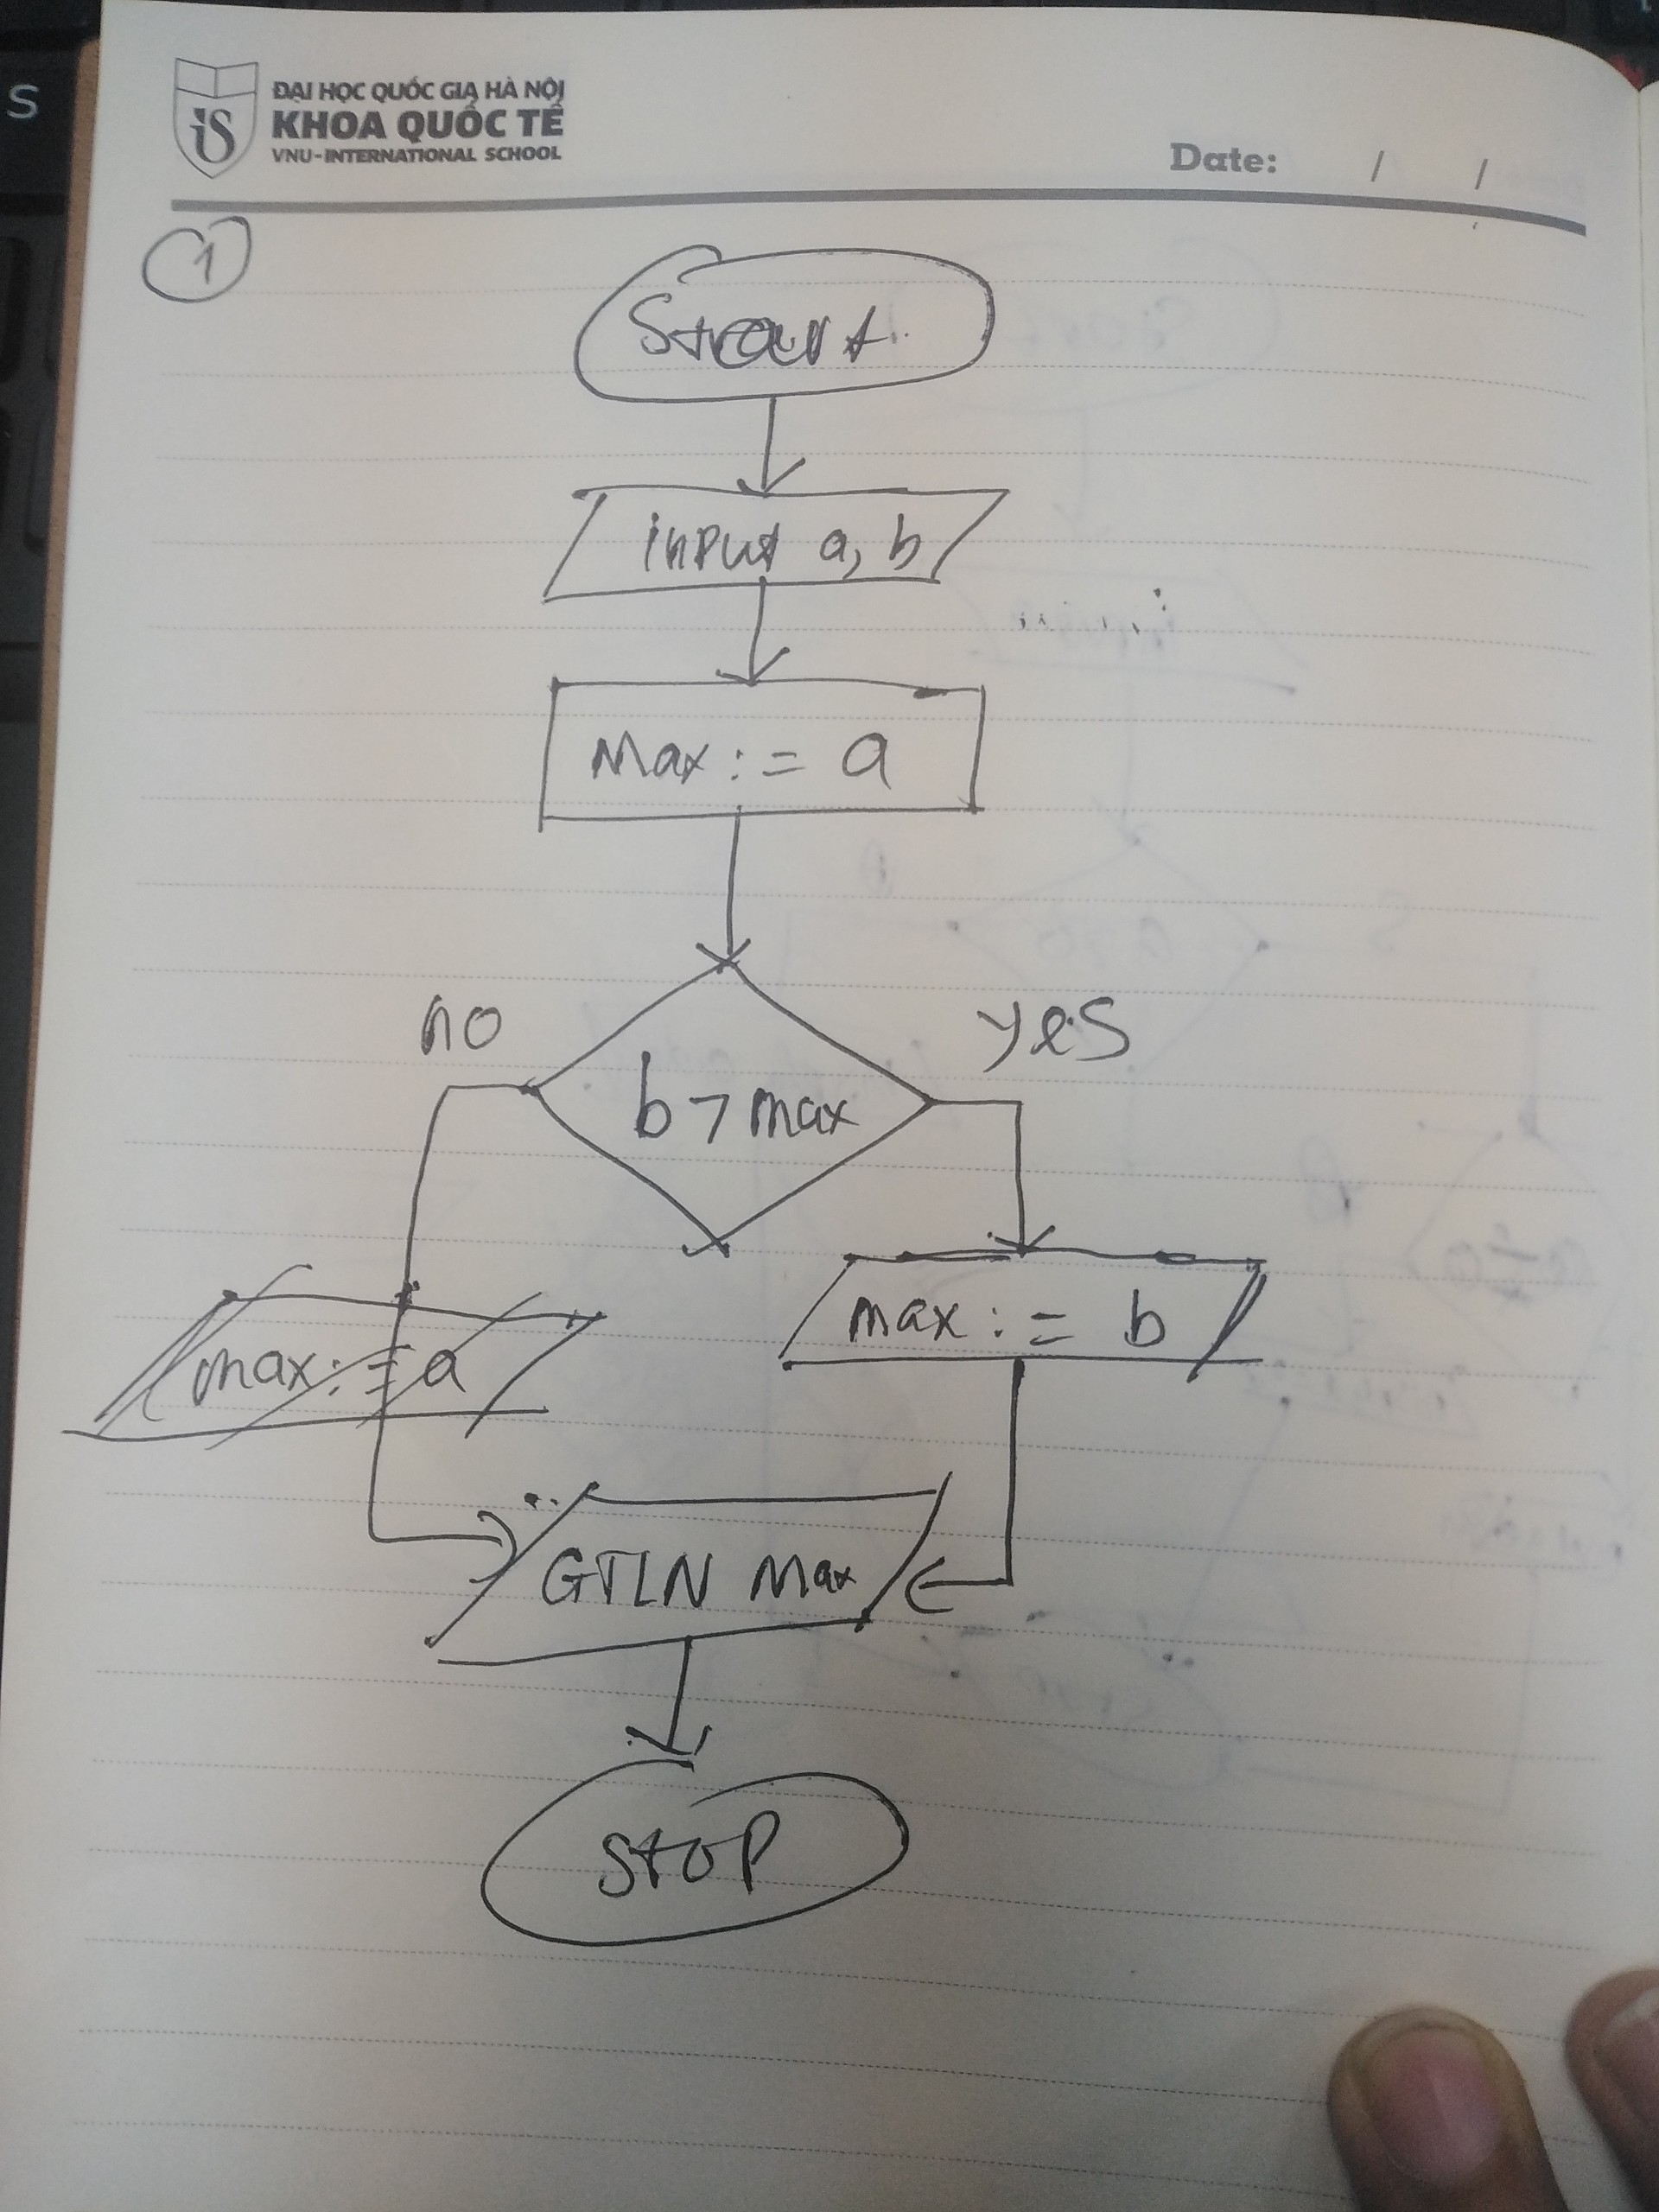 S
ĐẠI HỌC QUỐC GIA HÀ NỘI
KHOA QUỐC TẾ
VNU-INTERNATIONAL SCHOOL
iS
Date: / /
1
Start
input a, b
Max := a
no
yes
b > max
max := a
max := b
GTLN Max
STOP